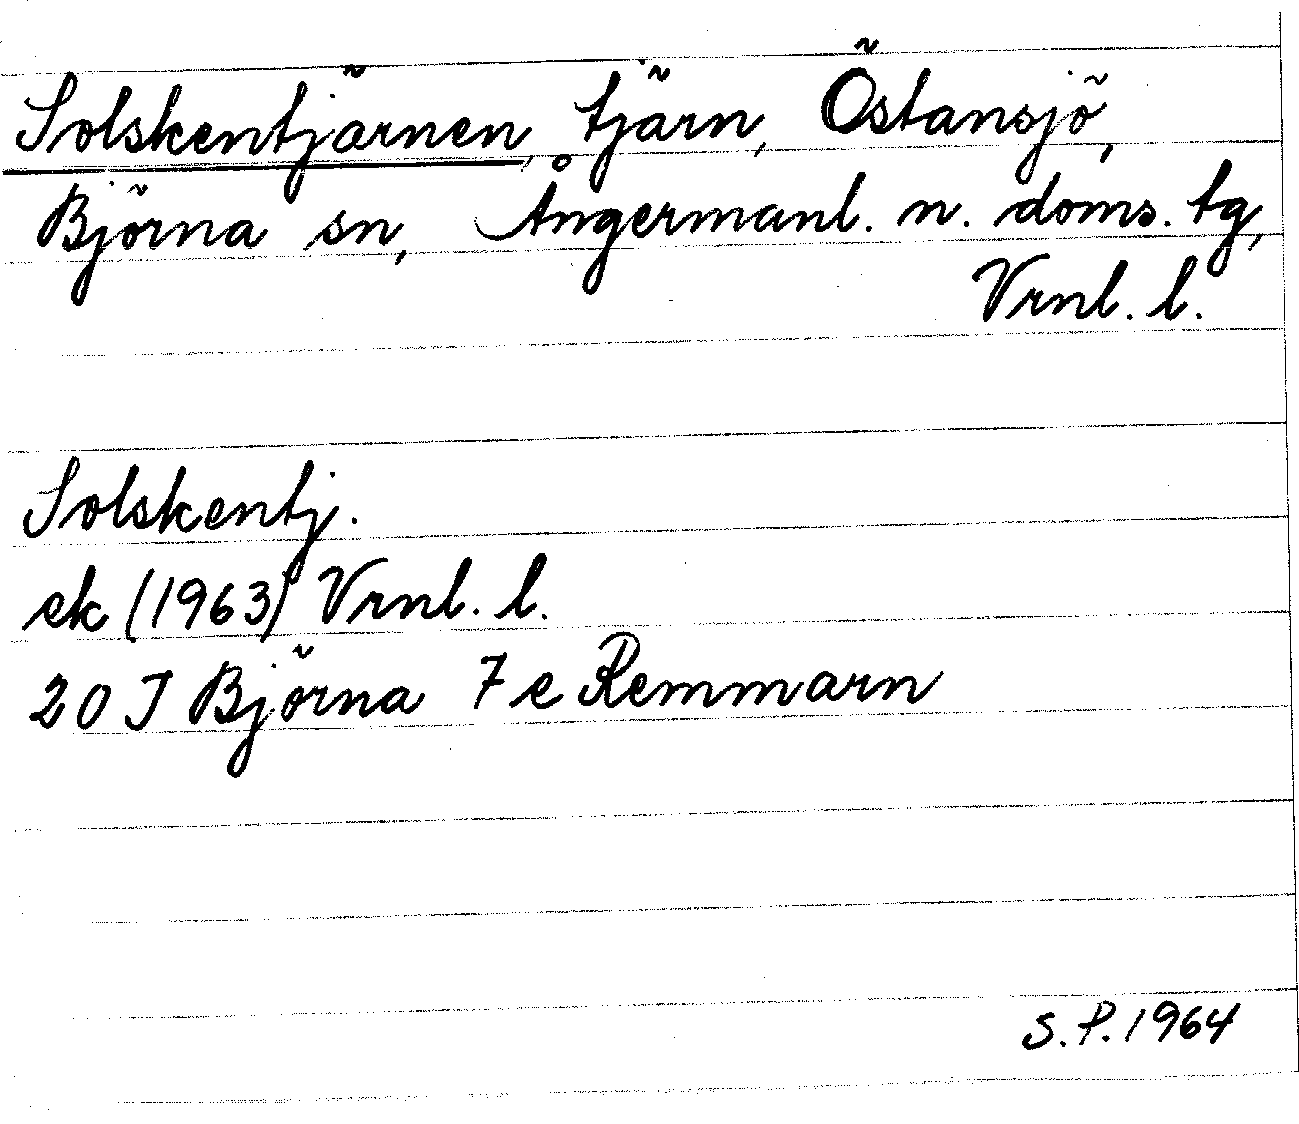 Solskentjärnen, tjärn, Östansjö,
Björna sn, Ångermanl. n. doms. tg,
Vrnl. l.
Solskentj.
ek (1963) Vrnl. l.
20 J Björna 7 e Remmarn
S.P. 1964